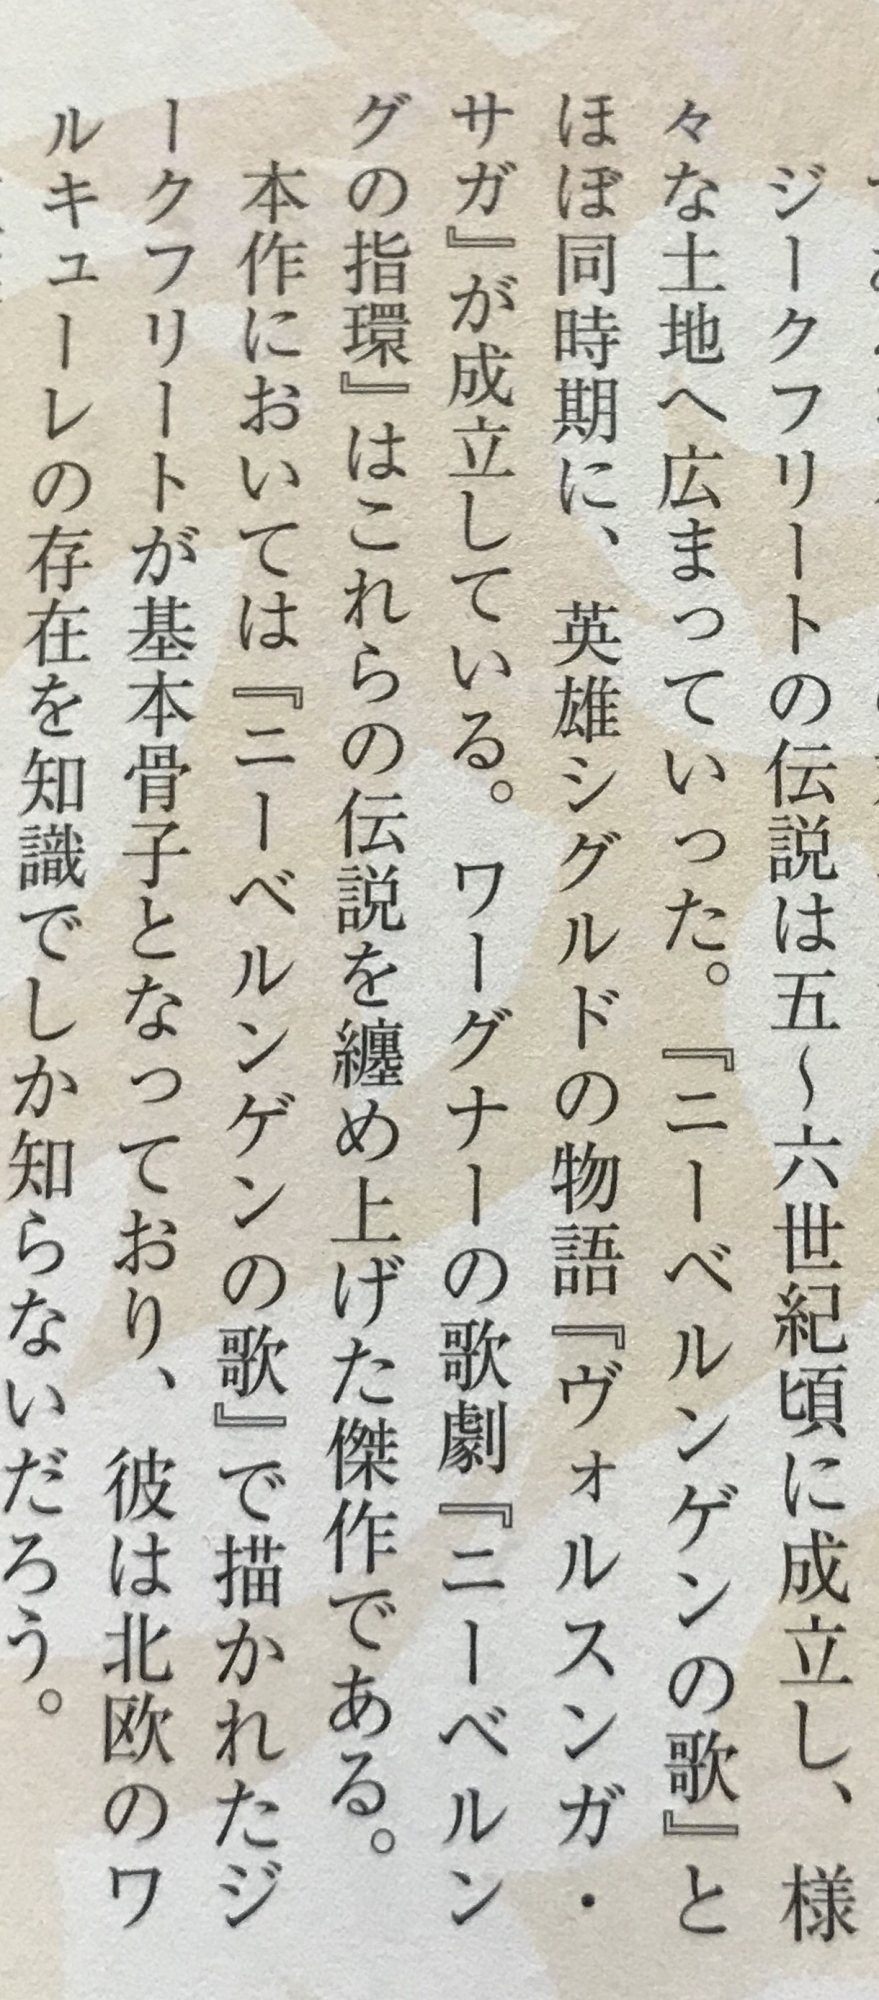 ジークフリートの伝説は五～六世紀頃に成立し、様
々な土地へ広まっていった。『ニーベルンゲンの歌』と
ほぼ同時期に、英雄シグルドの物語『ヴォルスンガ・
サガ』が成立している。ワーグナーの歌劇『ニーベルン
グの指環』はこれらの伝説を纏め上げた傑作である。
本作においては『ニーベルンゲンの歌』で描かれたジ
ークフリートが基本骨子となっており、彼は北欧のワ
ルキューレの存在を知識でしか知らないだろう。